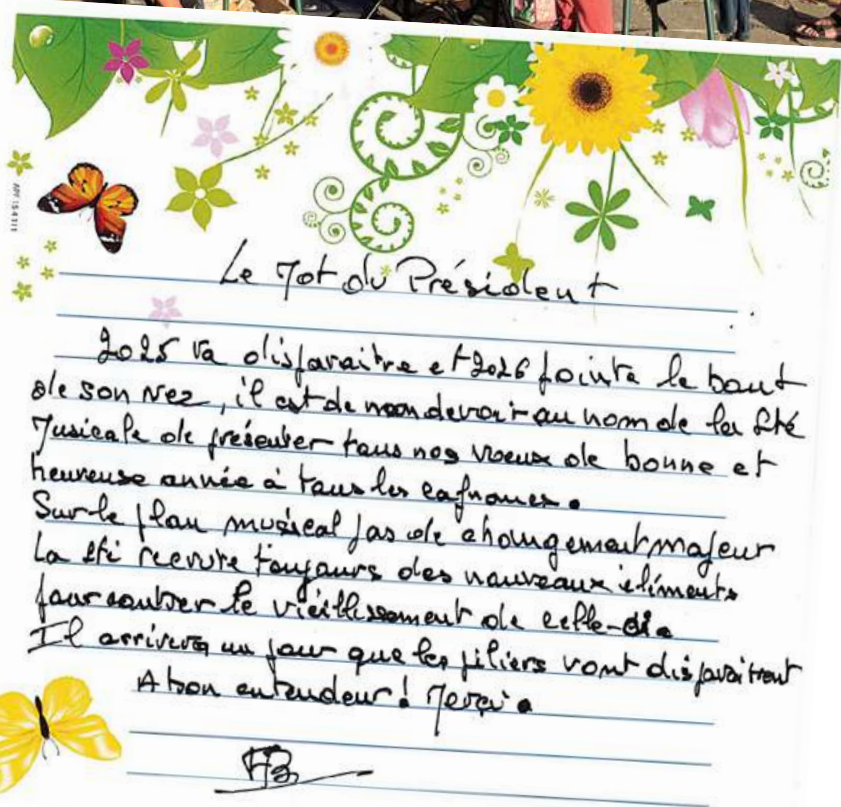 Le Mot du Président
2025 va disparaitre et 2026 pointe le bout
de son nez, il est de mon devoir au nom de la Sté
Musicale de présenter tous nos voeux de bonne et
heureuse année à tous les
Sur le plan musical pas de changement majeur
La Sté recrute toujours des nouveaux éléments
pour contrer le vieillissement de celle-ci.
Il arrivera un jour que les piliers vont disparaitrent
A bon entendeur ! Merci.